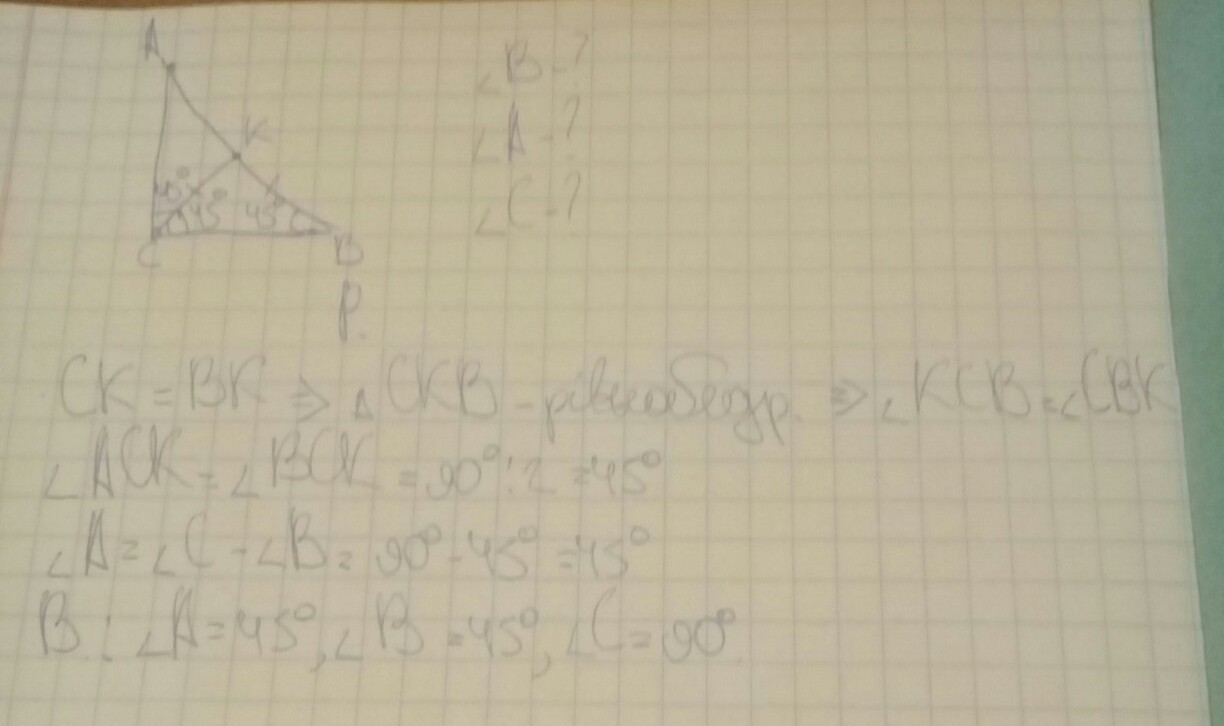 A
∠B - ?
K
∠A - ?
45° 45° 45°
∠C - ?
C B
P.
CK = BK ⇒ △ CKB - рівнобедр. ⇒ ∠KCB = ∠CBK
∠ACK = ∠BCK = 90° : 2 = 45°
∠A = ∠C - ∠B = 90° - 45° = 45°
В: ∠A = 45°, ∠B = 45°, ∠C = 90°.